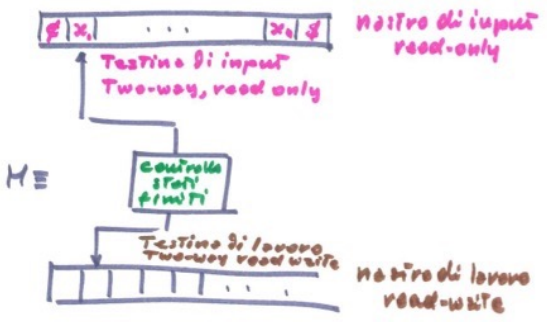 ¢ x₁ . . . xₙ $ nastro di input
read-only
Testina di input
Two-way, read only
controllo
stati
finiti
M ≡
Testina di lavoro
Two-way read write
. . .
nastro di lavoro
read-write